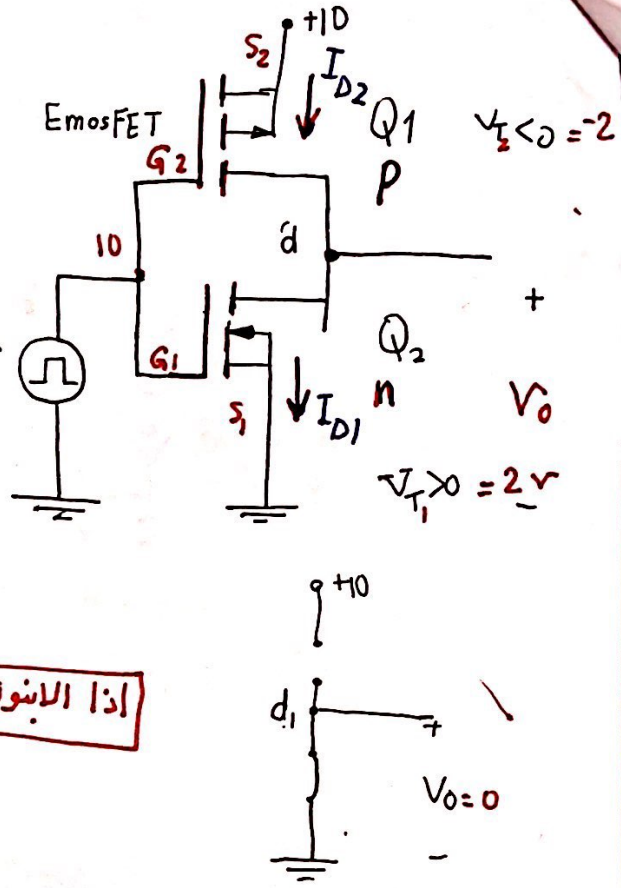 +10
S2
ID2
EmosFET
Q1
VT2<0 =-2
G2
P
10
d
+
G1
Q2
n
S1
ID1
Vo
VT1>0 = 2v
-
+10
اذا
d1
+
Vo=0
-